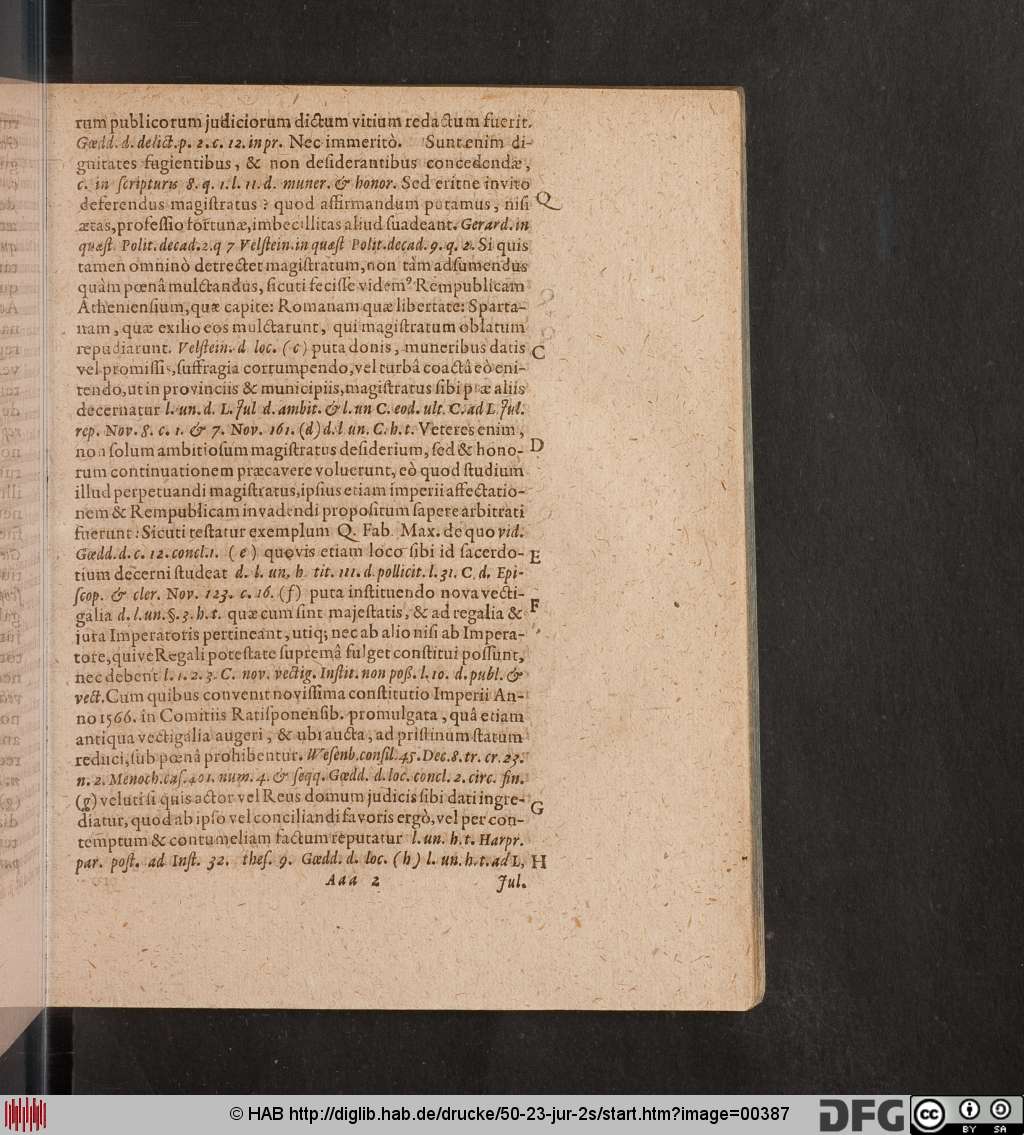 rum publicorum judiciorum dictum vitium redactum fuerit.
Gœdd. d. delict. p. 2. c. 12. in pr. Nec immeritò. Sunt enim di-
gnitates fugientibus, & non desiderantibus concedendæ,
c. in scripturis 8. q. 1. l. 11. d. muner. & honor. Sed eritne invito
deferendus magistratus? quod affirmandum putamus, nisi Q
ætas, professio fortunæ, imbecillitas aliud suadeant. Gerard. in
quæst. Polit. decad. 2. q 7 Velstein. in quæst Polit. decad. 9. q. 2. Si quis
tamen omninò detrectet magistratum, non tàm adsumendus
quàm pœnâ mulctandus, sicuti fecisse videmꝰ Rempublicam
Atheniensium, quæ capite: Romanam quæ libertate: Sparta-
nam, quæ exilio eos mulctarunt, qui magistratum oblatum
repudiarunt. Velstein. d loc. (c) puta donis, muneribus datis C
vel promissis, suffragia corrumpendo, vel turbâ coactâ eò eni-
tendo, ut in provinciis & municipiis, magistratus sibi præ aliis
decernatur l. un. d. L. Jul d. ambit. & l. un C. eod. ult. C. ad L Jul.
rep. Nov. 8. c. 1. & 7. Nov. 161. (d) d. l un. C. h. t. Veteres enim,
non solum ambitiosum magistratus desiderium, sed & hono- D
rum continuationem præcavere voluerunt, eò quod studium
illud perpetuandi magistratus, ipsius etiam imperii affectatio-
nem & Rempublicam invadendi propositum sapere arbitrati
fuerunt: Sicuti testatur exemplum Q. Fab. Max. de quo vid.
Gœdd. d. c. 12. concl. 1. (e) quovis etiam loco sibi id sacerdo- E
tium decerni studeat d. l. un. h tit. 111. d. pollicit. l. 31. C. d. Epi-
scop. & cler. Nov. 123. c. 16. (f) puta instituendo nova vecti-
galia d. l. un. §. 3. h. t. quæ cum sint majestatis, & ad regalia & F
jura Imperatoris pertineant, utiq; nec ab alio nisi ab Impera-
tore, quive Regali potestate supremâ fulget constitui possunt,
nec debent l. 1. 2. 3. C. nov. vectig. Instit. non poß. l. 10. d. publ. &
vect. Cum quibus convenit novissima constitutio Imperii An-
no 1566. in Comitiis Ratisponensib. promulgata, quâ etiam
antiqua vectigalia augeri, & ubi aucta, ad pristinum statum
reduci, sub pœnâ prohibentur. Wesenb. consil. 45. Dec. 8. tr. cr. 23.
n. 2. Menoch. cas. 401. num. 4. & seqq. Gœdd. d. loc. concl. 2. circ. fin.
(g) veluti si quis actor vel Reus domum judicis sibi dati ingre- G
diatur, quod ab ipso vel conciliandi favoris ergò, vel per con-
temptum & contumeliam factum reputatur l. un. h. t. Harpr.
par. post. ad Inst. 32. thes. 9. Gœdd. d. loc. (h) l. un. h. t. ad L, H
Aaa 2 Jul.
© HAB http://diglib.hab.de/drucke/50-23-jur-2s/start.htm?image=00387
DFG
cc BY SA